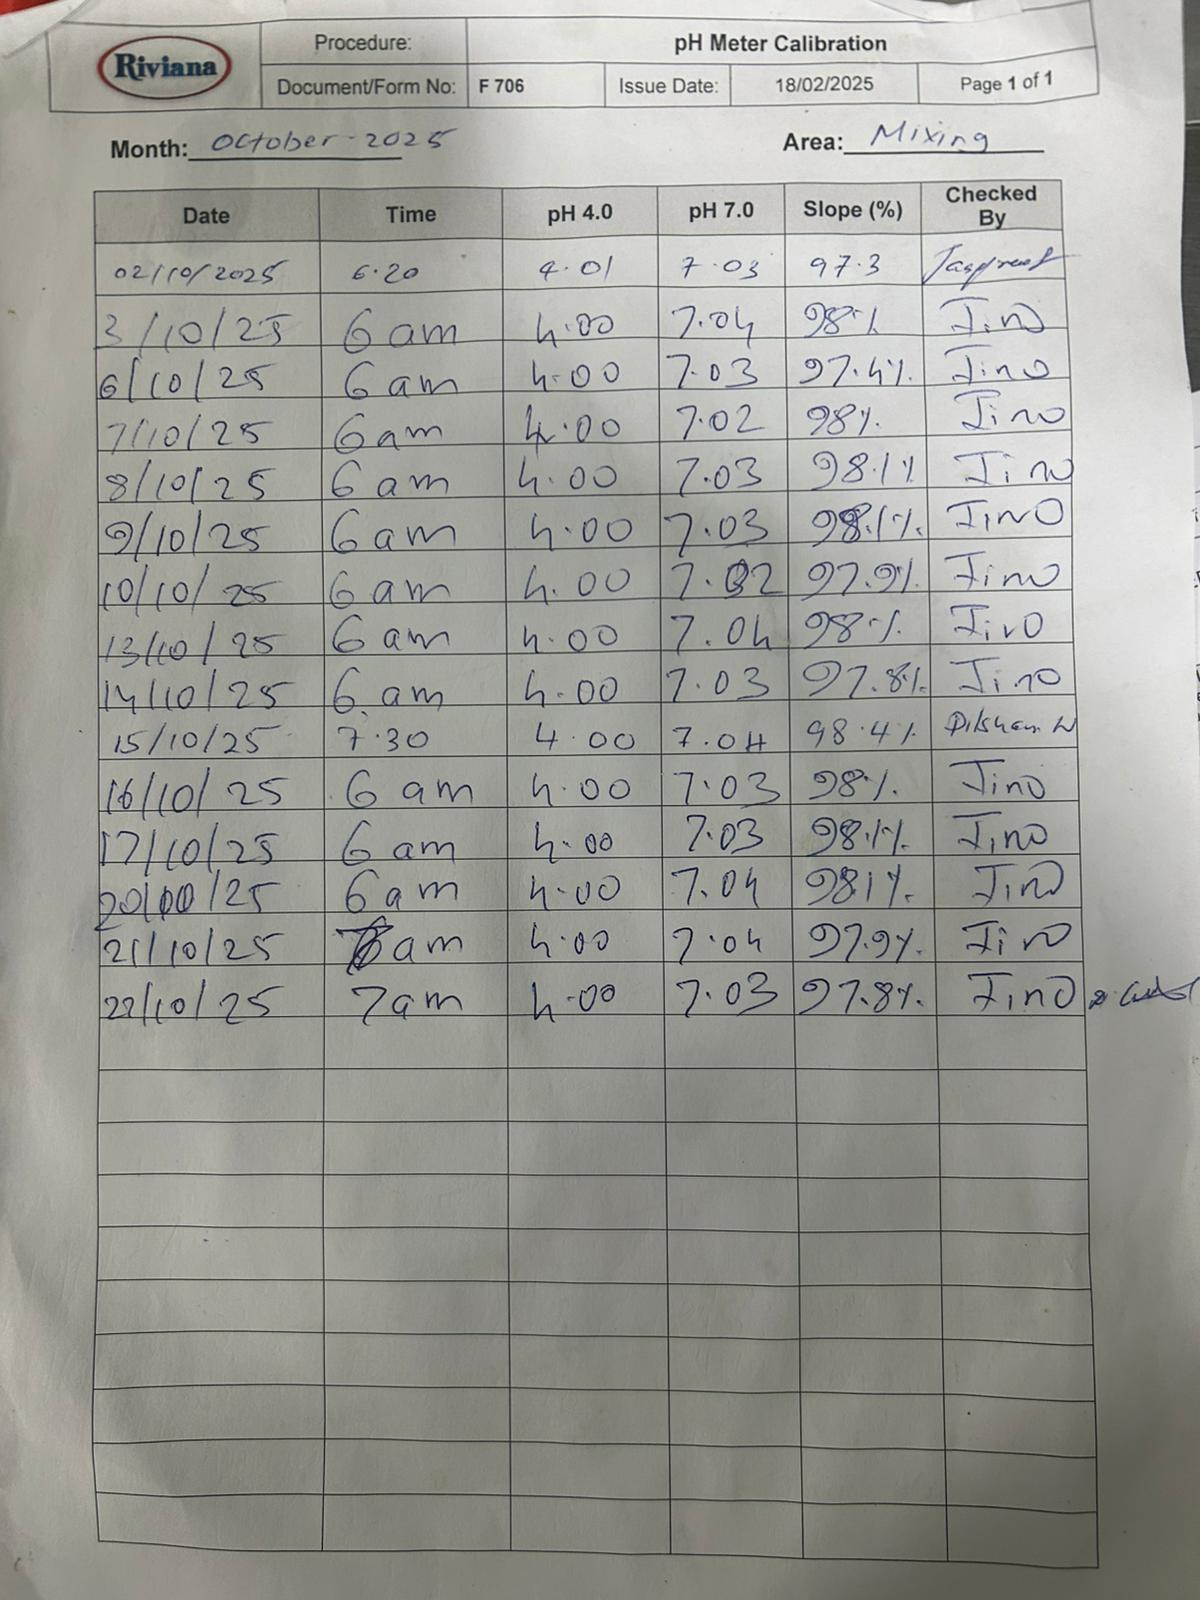 Riviana
Procedure: pH Meter Calibration
Document/Form No: F 706 Issue Date: 18/02/2025 Page 1 of 1
Month: October-2025 Area: Mixing
Date Time pH 4.0 pH 7.0 Slope (%) Checked By
02/10/2025 6.20 4.01 7.03 97.3 Jaspreet
3/10/25 6 am 4.00 7.04 98% Jino
6/10/25 6 am 4.00 7.03 97.4% Jino
7/10/25 6 am 4.00 7.02 98% Jino
8/10/25 6 am 4.00 7.03 98.1% Jino
9/10/25 6 am 4.00 7.03 98.1% Jino
10/10/25 6 am 4.00 7.02 97.9% Jino
13/10/25 6 am 4.00 7.04 98% Jino
14/10/25 6 am 4.00 7.03 97.8% Jino
15/10/25 7.30 4.00 7.04 98.4% Dilshan W
16/10/25 6 am 4.00 7.03 98% Jino
17/10/25 6 am 4.00 7.03 98.1% Jino
20/10/25 6 am 4.00 7.04 981% Jino
21/10/25 am 4.00 7.04 97.9% Jino
22/10/25 7am 4.00 7.03 97.8% Jino